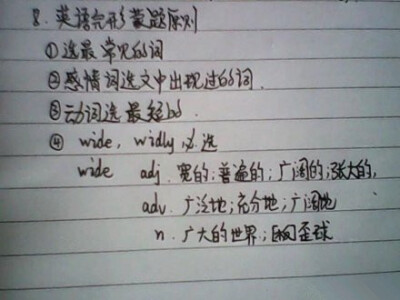 8. 英语完形蒙题原则
①选最常见的词
②感情词选文中出现过的词.
③动词选最短的.
④ wide, widly 必选
wide adj. 宽的;普遍的;广阔的;张大的,
adv. 广泛地;充分地;广阔地
n. 广大的世界;歪球